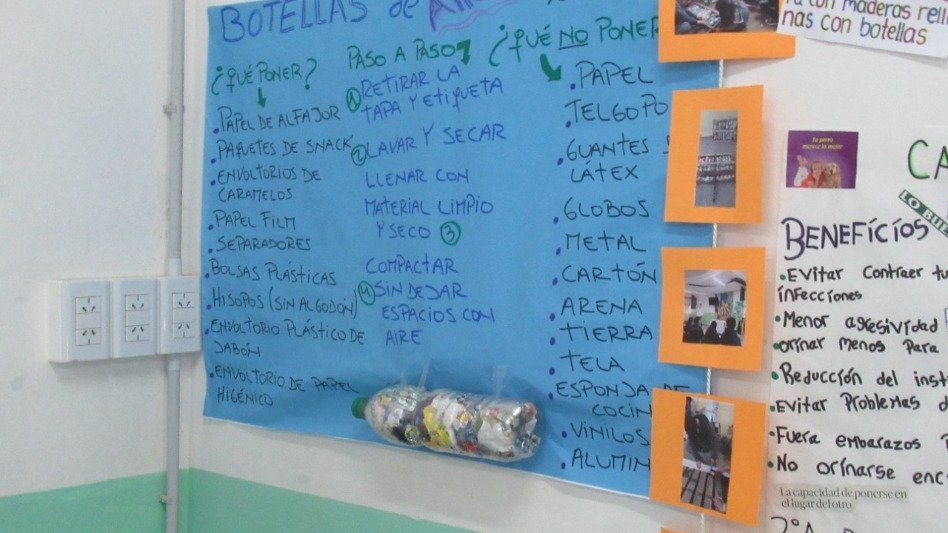 BOTELLAS de
¿QUÉ PONER?
• PAPEL DE ALFAJOR
• PAQUETES DE SNACK
• ENVOLTORIOS DE
CARAMELOS
• PAPEL FILM
• SEPARADORES
• BOLSAS PLÁSTICAS
• HISOPOS (SIN ALGODÓN)
• ENVOLTORIO PLÁSTICO DE
JABÓN
• ENVOLTORIO DE PAPEL
HIGÉNICO
PASO A PASO
① RETIRAR LA
TAPA Y ETIQUETA
② LAVAR Y SECAR
LLENAR CON
MATERIAL LIMPIO
Y SECO ③
COMPACTAR
④ SIN DEJAR
ESPACIOS CON
AIRE
¿QUÉ NO PONER
• PAPEL
TELGOPO
• GUANTES D
LÁTEX
• GLOBOS
• METAL
• CARTÓN
• ARENA
• TIERRA
• TELA
• ESPONJA DE
COCIN
• VINILOS
• ALUMIN
con maderas
nas con botellas
CA
LO BUE
BENEFÍCÍOS
• Evitar contraer tu
infecciones
• Menor agresividad
• orinar menos para
• Reducción del inst
• Evitar Problemas d
• Fuera embarazos
• No orinarse enc
La capacidad de ponerse en
el lugar del otro